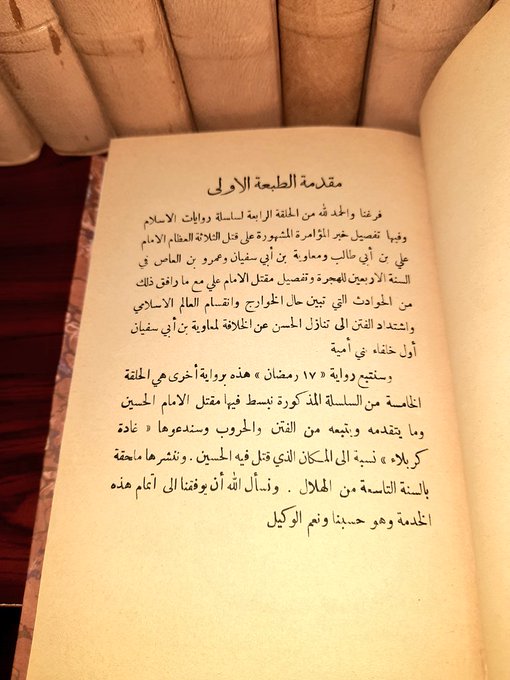 مقدمة الطبعة الاولى
فرغنا والحمد لله من الحلقة الرابعة لسلسلة روايات الاسلام
وفيها تفصيل خبر المؤامرة المشهورة على قتل الثلاثة العظام الامام
علي بن أبي طالب ومعاوية بن أبي سفيان وعمرو بن العاص في
السنة الاربعين للهجرة وتفصيل مقتل الامام علي مع ما رافق ذلك
من الحوادث التي تبين حال الخوارج وانقسام العالم الاسلامي
واشتداد الفتن الى تنازل الحسن عن الخلافة لمعاوية بن أبي سفيان
أول خلفاء بني أمية
وسنتبع رواية « ١٧ رمضان » هذه برواية أخرى هي الحلقة
الخامسة من السلسلة المذكورة نبسط فيها مقتل الامام الحسين
وما يتقدمه ويتبعه من الفتن والحروب وسندعوها « غادة
كربلاء » نسبة الى المكان الذي قتل فيه الحسين . وننشرها ملحقة
بالسنة التاسعة من الهلال . ونسأل الله أن يوفقنا الى اتمام هذه
الخدمة وهو حسبنا ونعم الوكيل